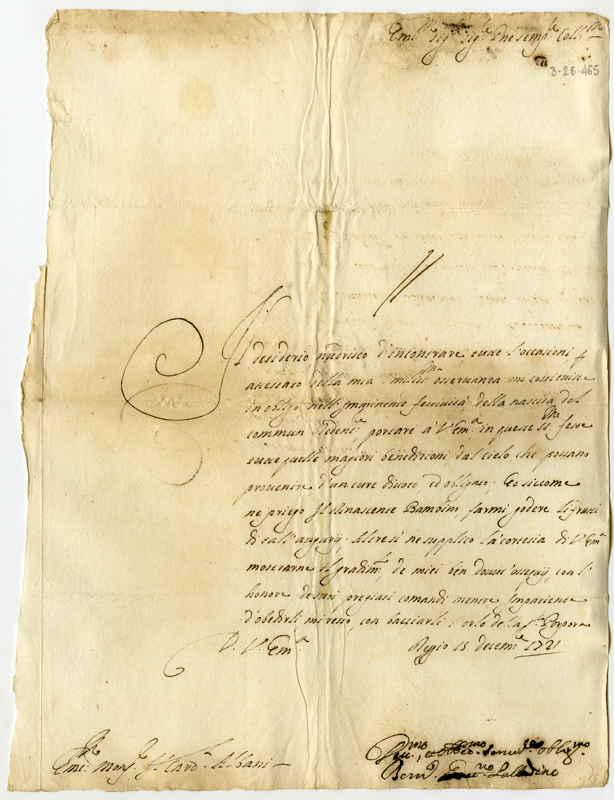 Em.mo Sig.r Sig.r P.ne semp.e Coll.mo
3-26-465
Il desiderio nudrisco d'incontrare tutte l'occasioni p
attestato della mia humiliss.ma osservanza mi costituisce
in obligo nell'imminente festività della nascita del
commun Redent.e portare à V Em.a in queste SS.me feste
tutte quelle magiori benedizioni dal cielo che possano
provenire d'un cure divoto ed obligato. Et siccome
ne priego Il Rinascente Bambino, farmi godere li frutti
di tall'augurij. Altresi ne supplico la cortesia di V Em.a
mostrarne il gradim.to de miei ben dovut'ossequij, con l'
honore de suoi pregiati comandi mentre impaziente
d'obedirli mi resto, con bacciarli l'orlo della S. Porpora
D. V. Em.a
Regio 15 decem.e 1721
Em.mo Monsig.re Card.l Albani
Div.mo, et obbed.mo Servid.re oblig.mo
Bern.o Saladino